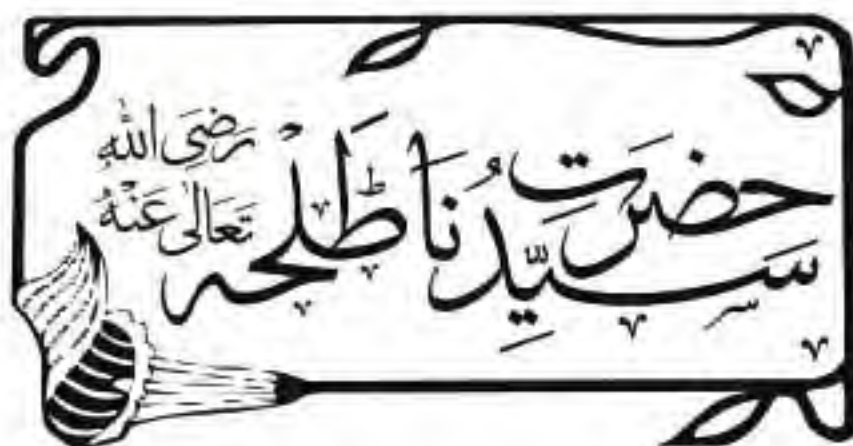 حضرتِ سیِّدُنا طَلْحہ رَضِیَ اللّٰہُ تَعَالٰی عَنْہُ